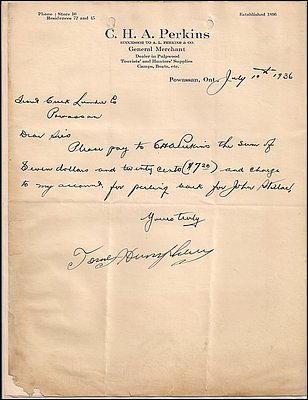 Phone: Store 10
Residences 72 and 45
Established 1896
C. H. A. Perkins
SUCCESSOR TO A. L. PERKINS & CO.
General Merchant
Dealer in Pulpwood
Tourists' and Hunters' Supplies
Camps, Boats, etc.
Powassan, Ont. July 10th 1936
Creek Lumber Co
Powassan
Dear Sirs
Please pay to C H A Perkins the sum of
Seven dollars and twenty cents ($7.20) and charge
to my account for peeling bark for John
Yours truly